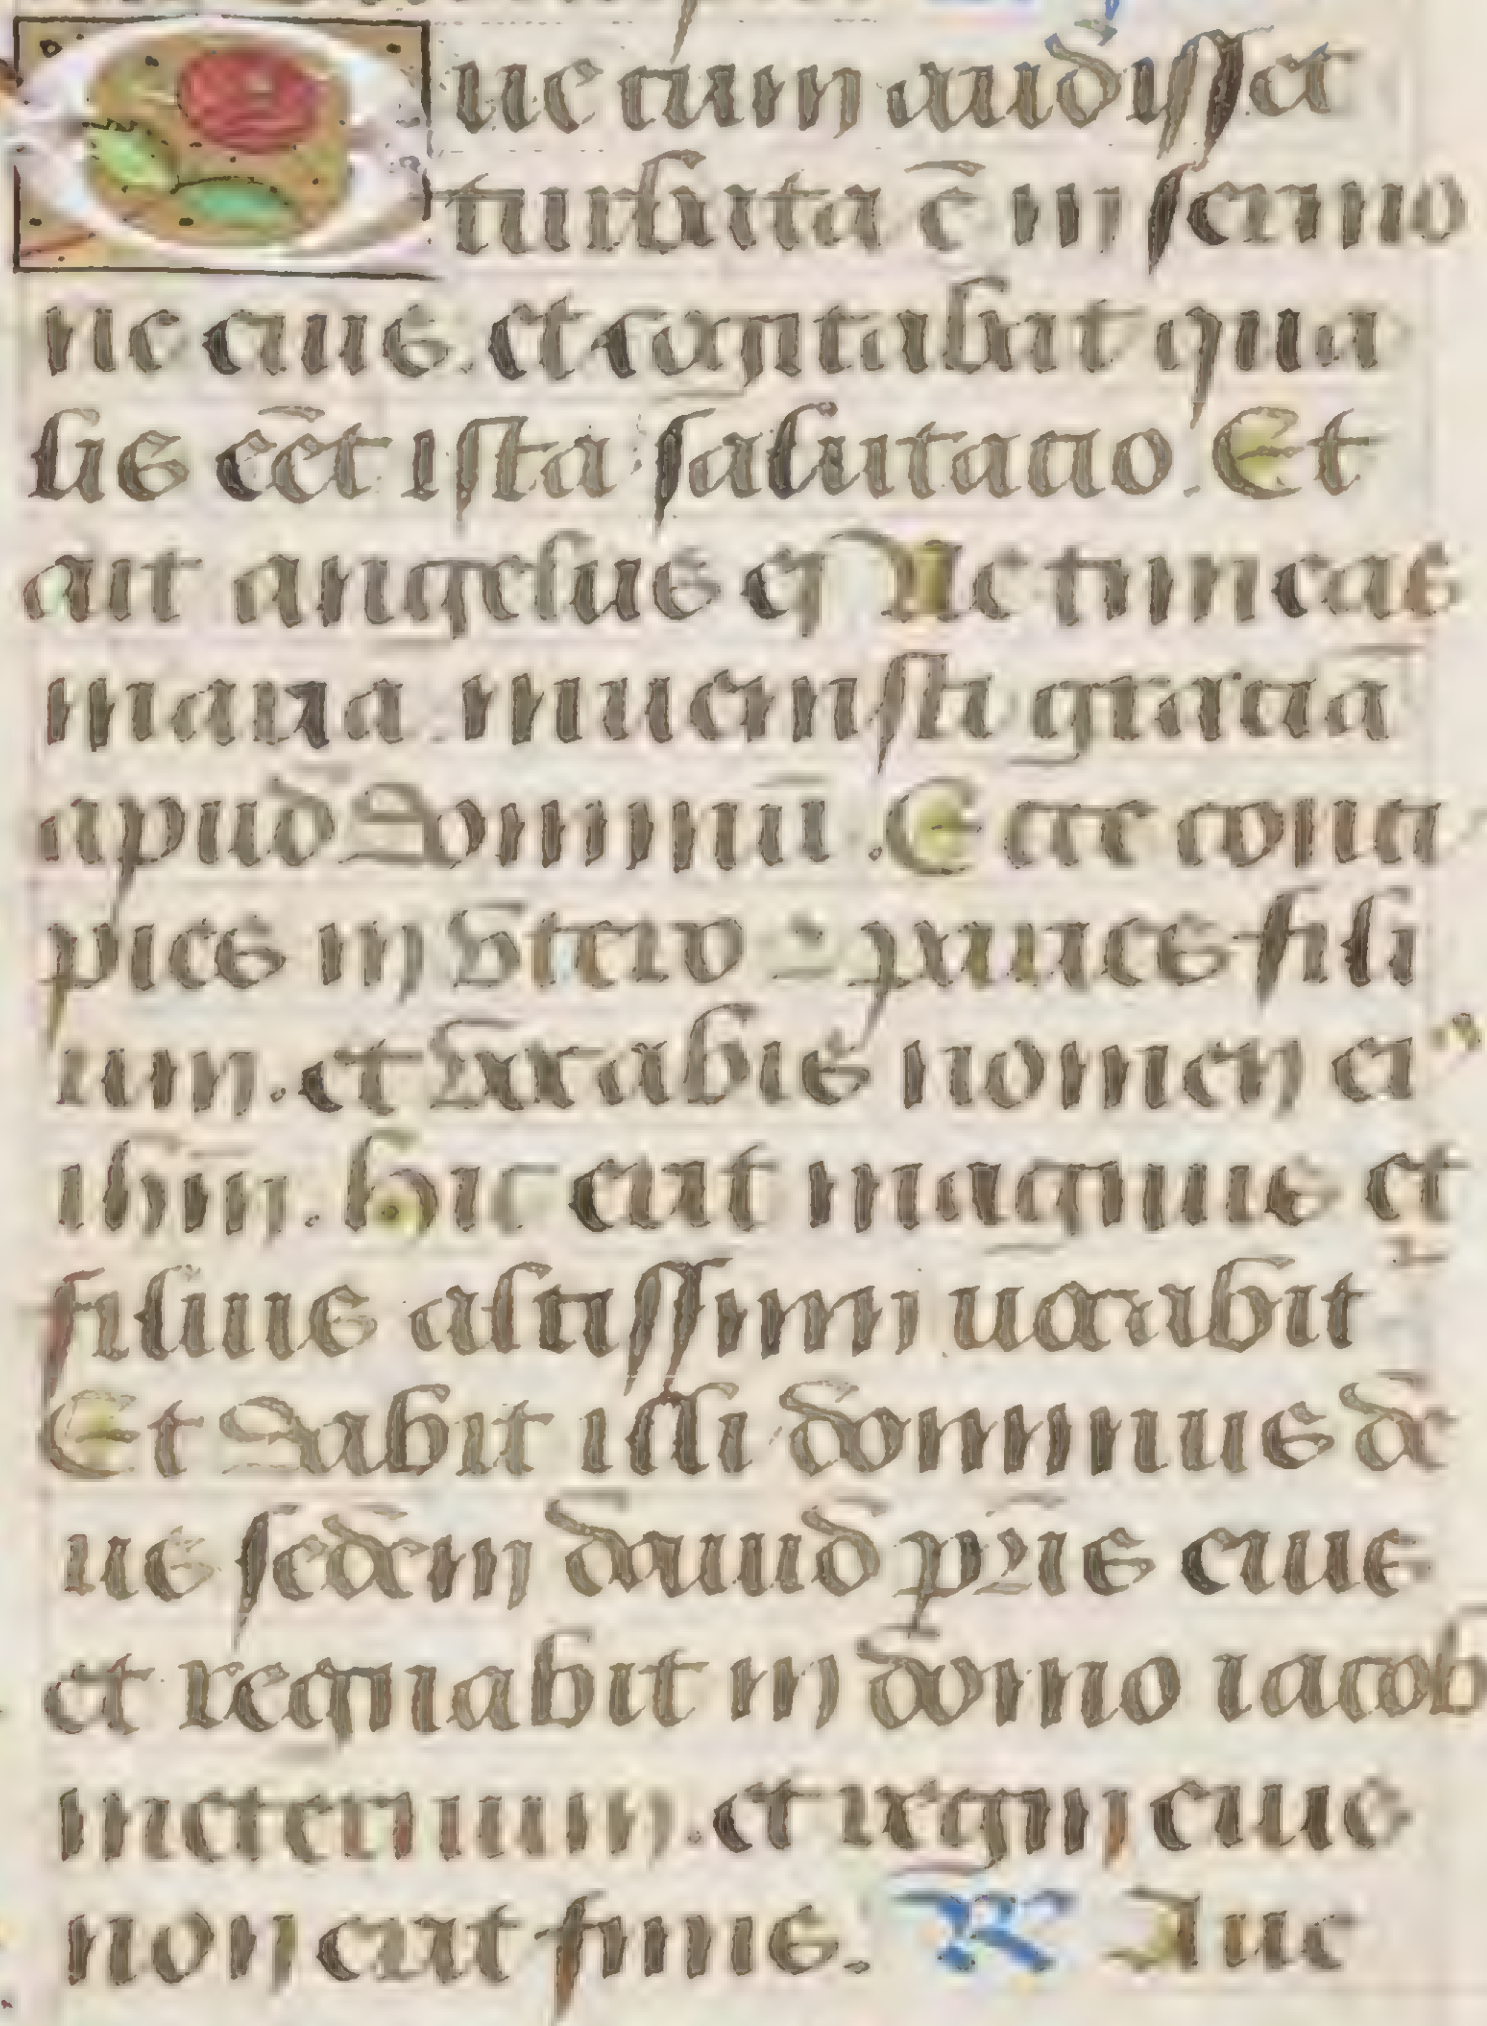 Que cum audisset
turbata ē in sermo
ne eius. et cogitabat qua
lis eēt ista salutatio. Et
ait angelus ei Ne timeas
maria. inuenisti graciā
apud dominū. Ecce conci
pies in vtero ⁊ paries fili
um. et vocabis nomen ei⁹
ihm̄. hic erit magnus et
filius altissimi uocabit᷑
Et dabit illi dominus de
us sedem dauid pr̄is eius
et regnabit in domo iacob
ineternum. et regni eius
non erit finis. R Aue